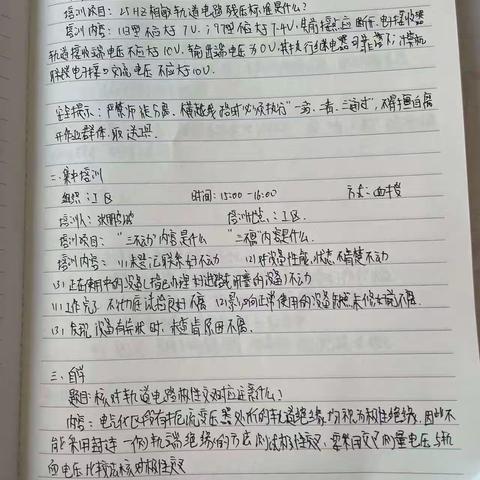 培训项目：25HZ相敏轨道电路残压标准是什么？
培训内容：旧型不大于7V；97型不大于7.4V，其前接点应断开。电子接收器
轨道接收端电压不应大于10V，输出端电压为0V，其执行继电器可靠落下；
电子接收 电压不应大于10V。
安全提示：严禁 ，横越线路时必须执行"一站、二看、三通过"，不得擅自离
开作业群体
二、集中培训
组织：工区 时间：15:00-16:00 方式：面授
培训人： 培训地点：工区.
培训项目："三不动"内容是什么 "三不离"内容是什么.
培训内容：(1)未登记联系好不动 (2)对设备性能、状态不清楚不动
(3)正在使用中的设备(指已办理好进路或闭塞的设备)不动
(1)工作完了，不彻底试验良好不离 (2)影响正常使用的设备缺点未修好前不离.
(3)发现设备有异状时，未查清原因不离.
三、自学
题目：核对轨道电路极性交叉对应注意什么？
内容：电气化区段有扼流变压器处的轨道绝缘，均视为极性绝缘，因此不
能采用封连一侧轨端绝缘的方法测试极性交叉，要采用交叉测量电压与轨
面电压比较法核对极性交叉